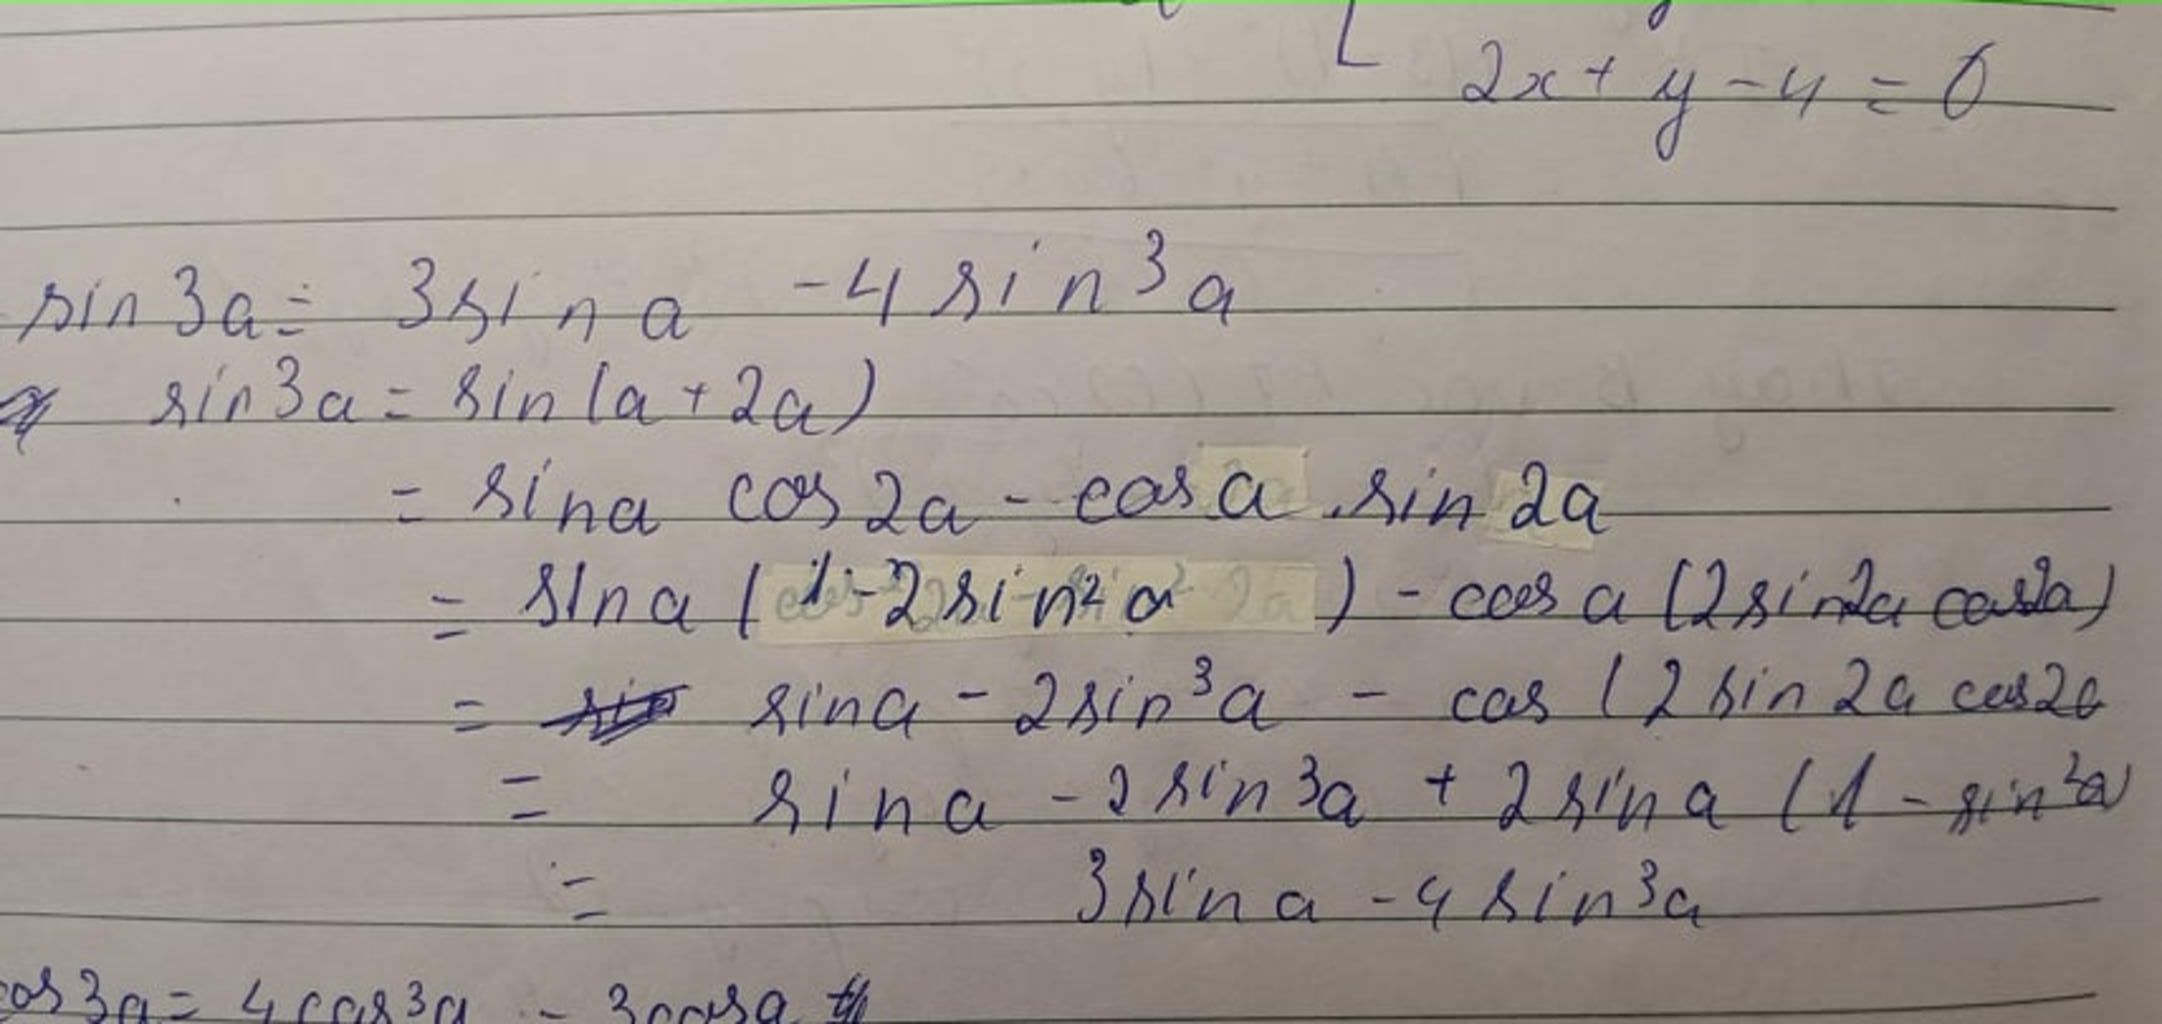 2x + y - 4 = 0
sin 3a = 3 sin a - 4 sin³ a
sin 3a = sin (a + 2a)
= sin a cos 2a - cos a . sin 2a
= sin a ( 1 - 2 sin² a ) - cos a (2 sin 2a cos 2a)
= sin a - 2 sin³ a - cos (2 sin 2a cos 2a
= sin a - 2 sin³ a + 2 sin a (1 - sin² a)
= 3 sin a - 4 sin³ a
cos 3a = 4 cos³ a - 3 cos a